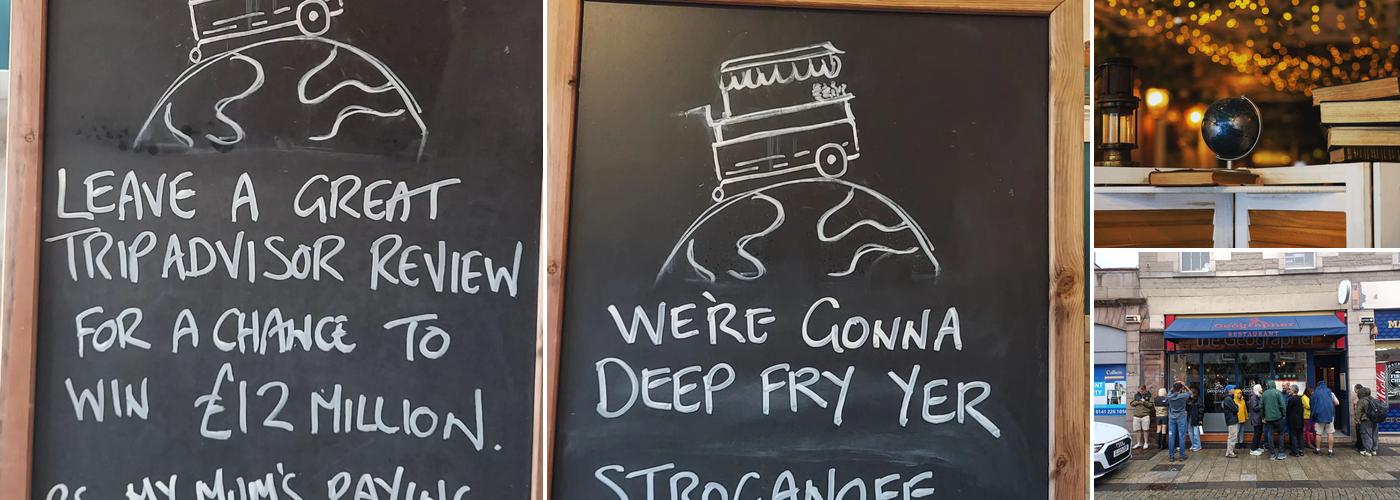 LEAVE A GREAT
TRIPADVISOR REVIEW
FOR A CHANCE TO
WIN £12 MILLION.
PS MY MUM'S PAYING
WE'RE GONNA
DEEP FRY YER
STROGANOFF
the Geographer
RESTAURANT
the Geographer
0141 226 105